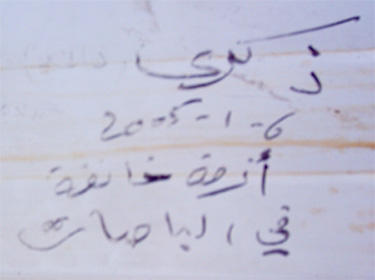 ذكرى
6-1-2005
أزمة خانقة
في الباصات